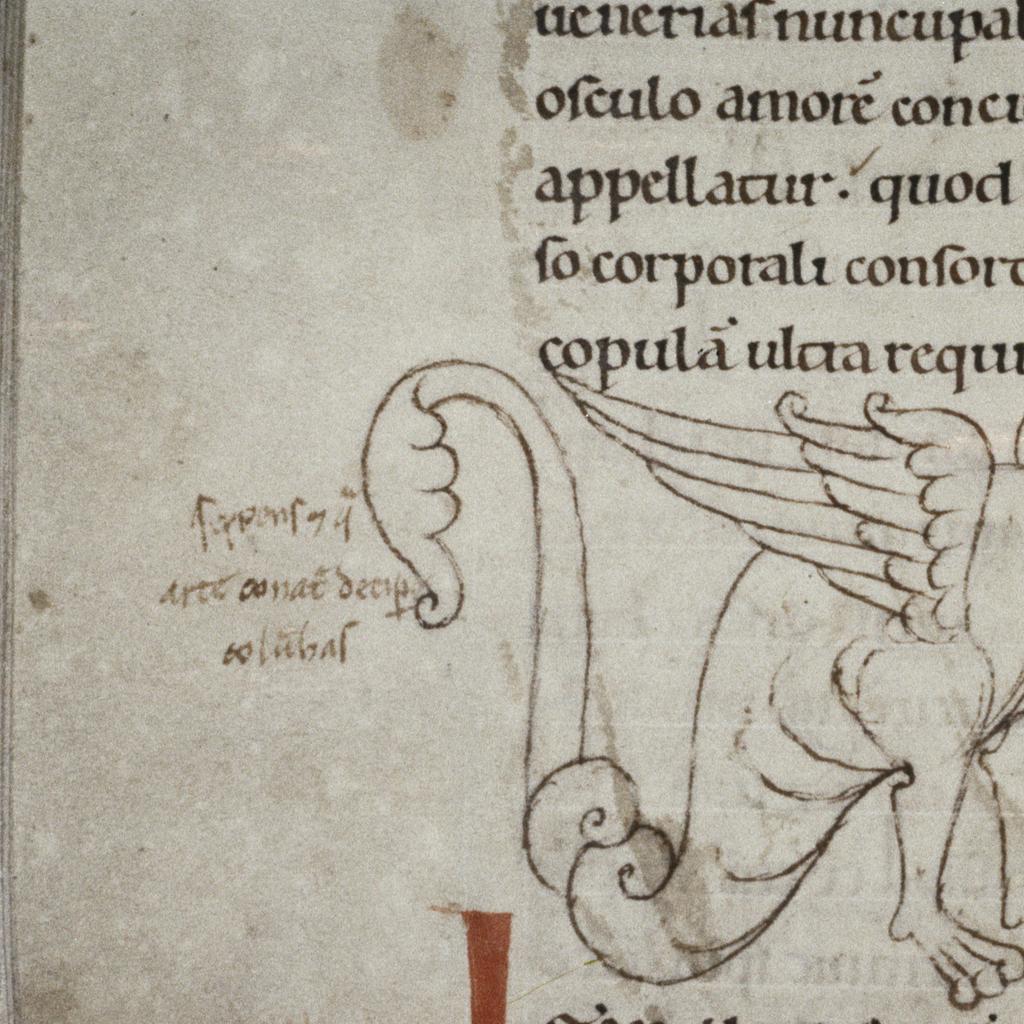 uenerias nuncupa
osculo amorē concu
appellatur. quod
so corporali consort
copulā ultra requi
arte conat̄ decip
colūbas